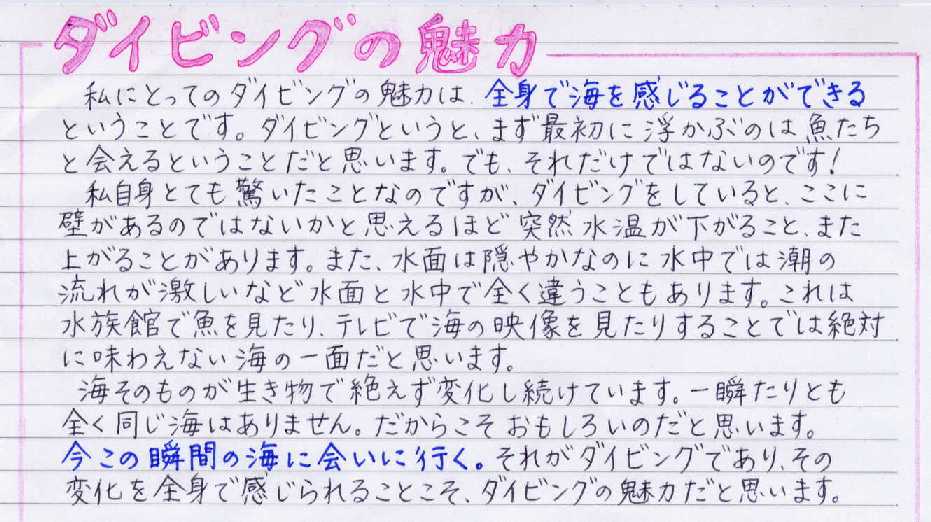 ダイビングの魅力
私にとってのダイビングの魅力は、全身で海を感じることができる
ということです。ダイビングというと、まず最初に浮かぶのは魚たち
と会えるということだと思います。でも、それだけではないのです!
私自身とても驚いたことなのですが、ダイビングをしていると、ここに
壁があるのではないかと思えるほど突然水温が下がること、また
上がることがあります。また、水面は隠やかなのに水中では潮の
流れが激しいなど水面と水中で全く違うこともあります。これは
水族館で魚を見たり、テレビで海の映像を見たりすることでは絶対
に味わえない海の一面だと思います。
海そのものが生き物で絶えず変化し続けています。一瞬たりとも
全く同じ海はありません。だからこそおもしろいのだと思います。
今この瞬間の海に会いに行く。それがダイビングであり、その
変化を全身で感じられることこそ、ダイビングの魅力だと思います。